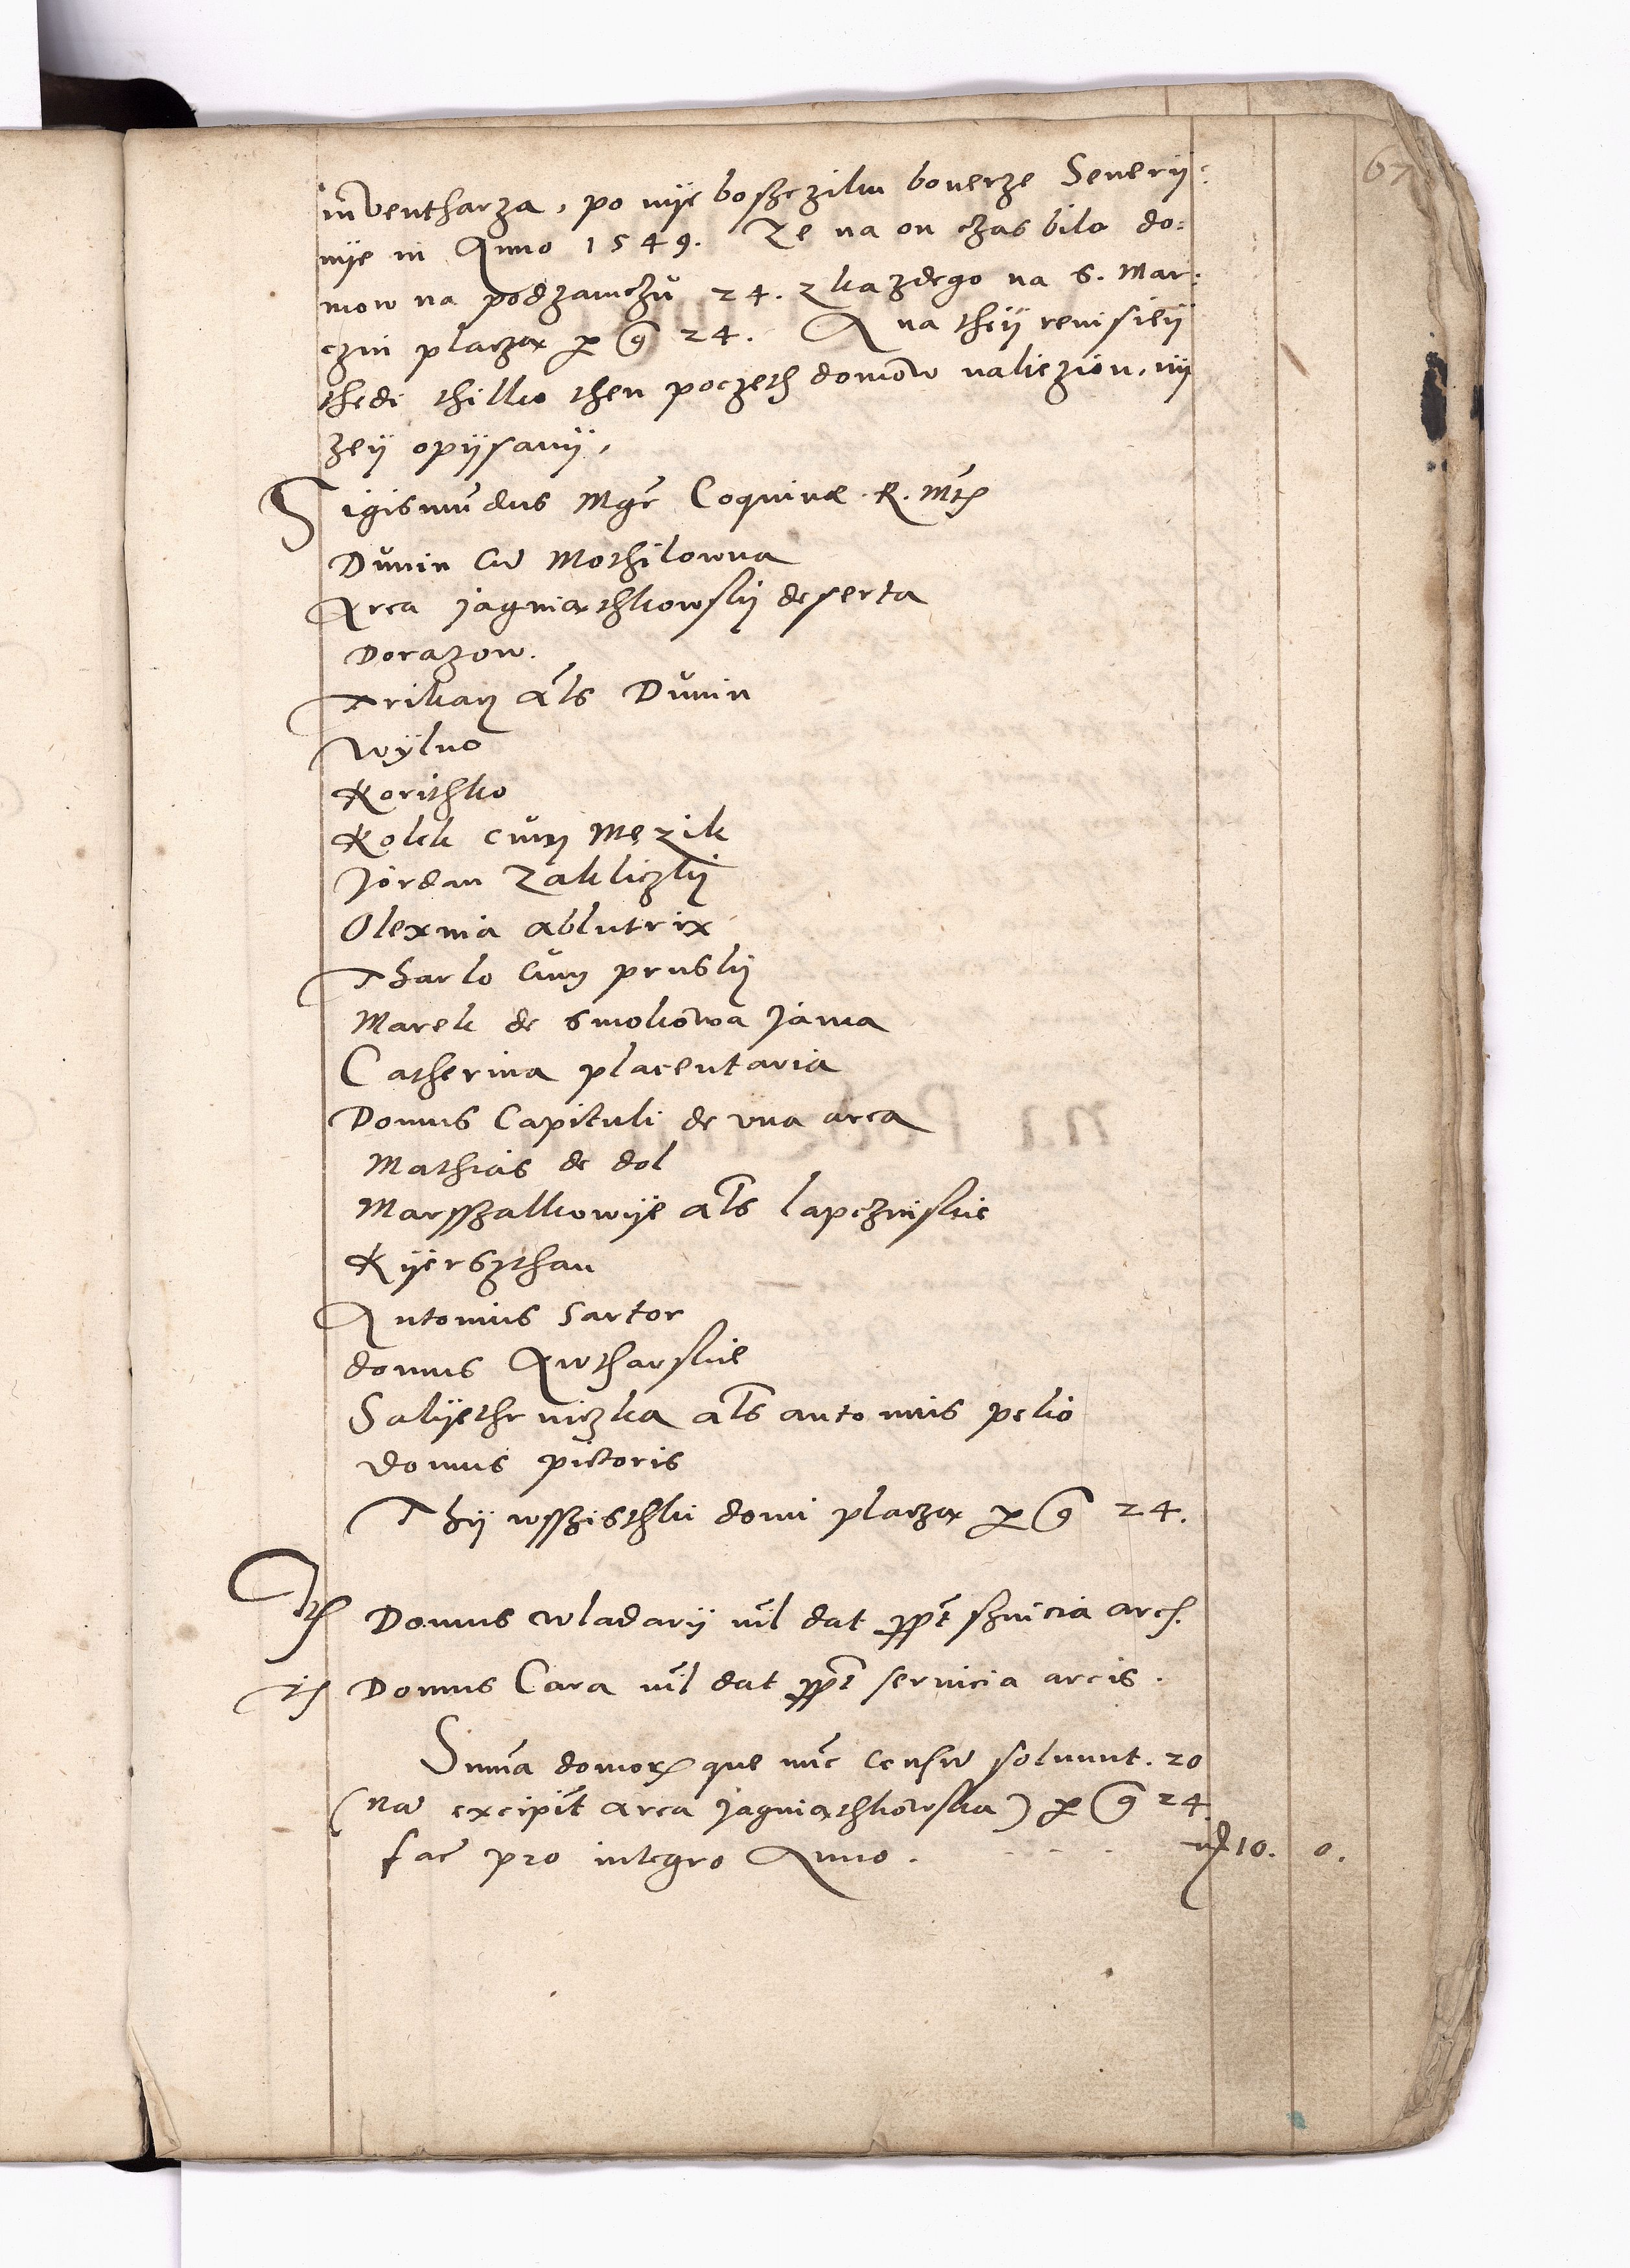 67
inventharza, po nÿe bosczilm bonerze Severÿ:
nÿe in Anno 1549. Ze na on czas bilo do:
mow na podzamczŭ 24. z kazdego na S. Mar:
czin placzą per gr 24. A na theÿ revisieÿ
thedi thilko then poczeth domow naliczion, nÿ
zeÿ opÿsanÿ,
Sigismūdus Mgr Coquinæ R. Mtis
Dŭnin cū Mothilowna
Area Jagniąthkowskÿ deserta
Dorazow.
Trikaÿ als Dŭnin
Wÿlno
Korithko
Kolek cŭm Męzik
Jordan Zakliczkÿ
Olexnia ablutrix
Tharlo cŭm pruskÿ
Marek de Smokowa Jama
Catherina placentaria
Domus Capituli de vna area
Mathias de dol
Marsszalkowÿe als lapczinskie
Kÿerszthan
Antonius Sartor
domus Awtharskie
Salÿethrniczka als antonius pekio
Domus pictoris
Thÿ wsszisthki domi placzą per gr 24.
It Domus wladarÿ nil dat ppt servicia arcis.
It Domus Cara nil dat ppt servicia arcis.
Suma domorum que nūc censū solvunt. 20
(nā excipit area Jagniąthkowska) per gr 24
fac pro integro Anno. - - - mr 10. 0.